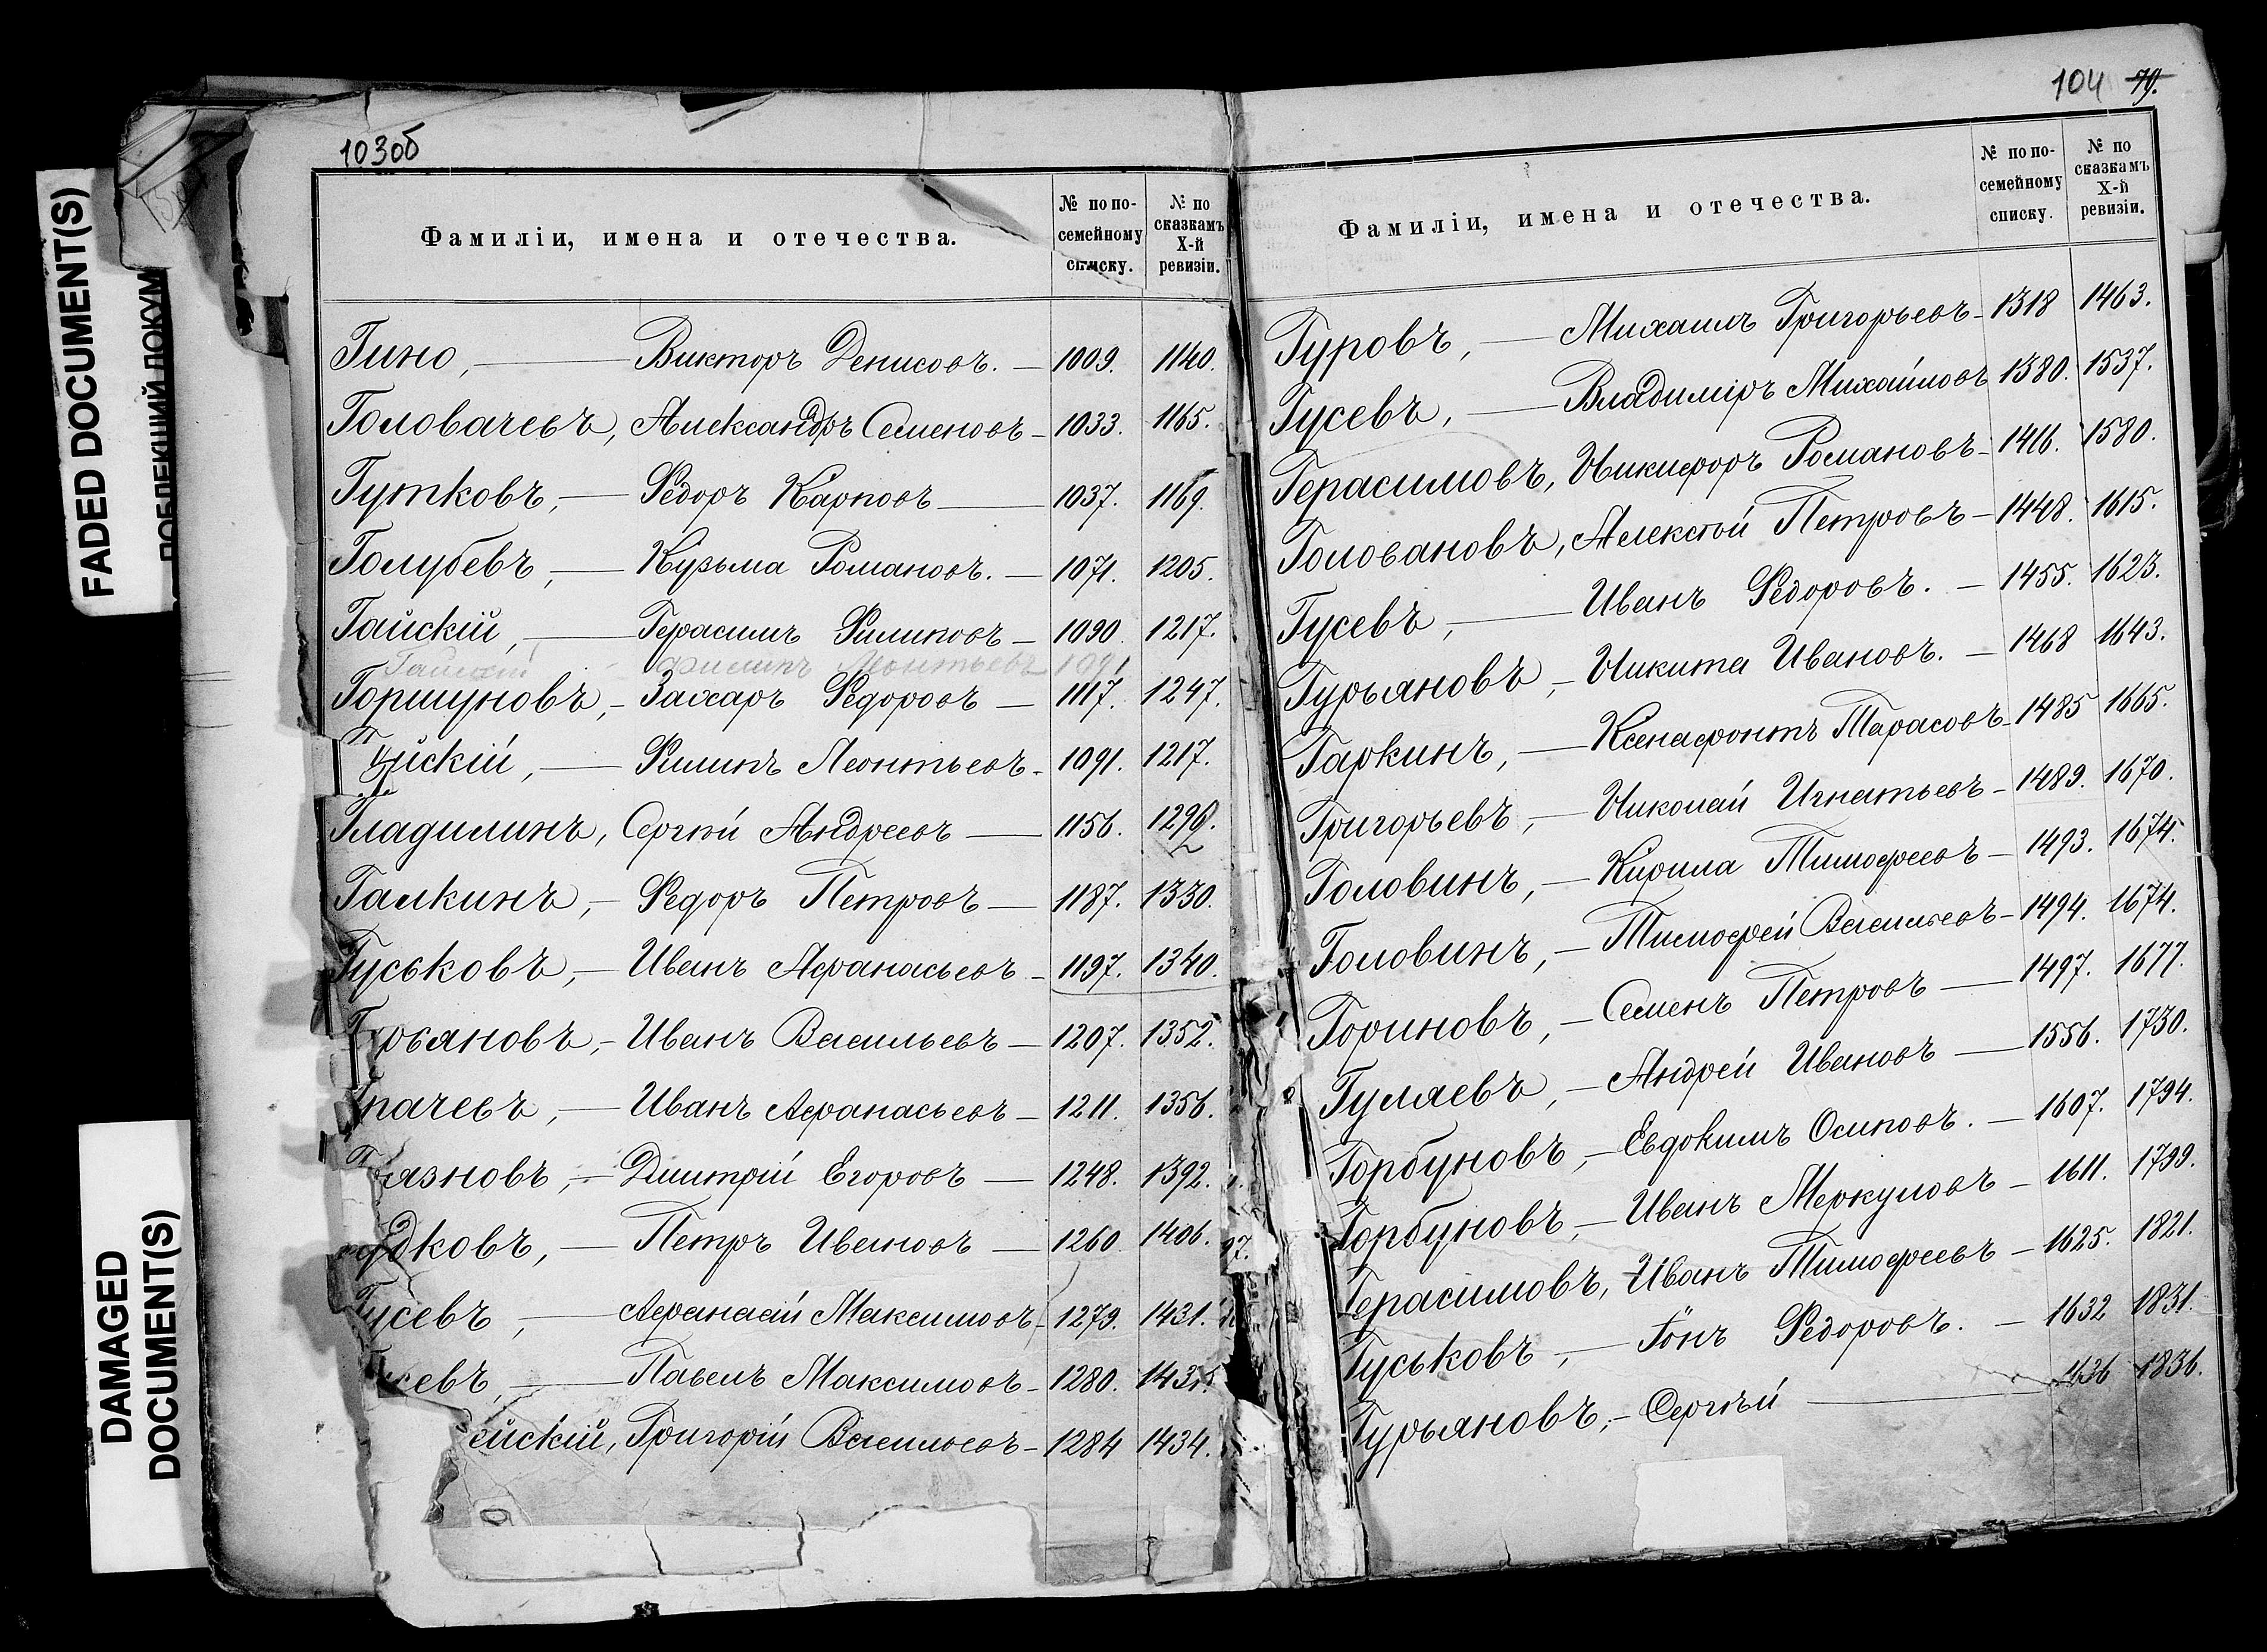 FADED DOCUMENT(S)
DAMAGED
DOCUMENT(S)
103об
Фамиліи, имена и отечества. № по по-семейному списку. № по сказкамъ X-й ревизіи.
Гино, — Викторъ Денисовъ. — 1009. 1140.
Головачевъ, Александръ Семеновъ — 1033. 1165.
Гутковъ, — Ѳедоръ Карповъ — 1037. 1169.
Голубевъ, — Кузьма Романовъ. — 1071. 1205.
Гайскій, — Герасимъ Филиповъ — 1090. 1217.
Гайскій Филипъ Леонтьевъ 1091
Горшуновъ, — Захаръ Ѳедоровъ — 1117. 1247.
йскій, — Филипъ Леонтьевъ — 1091. 1217.
Гладилинъ, Сергѣй Андреевъ — 1156. 1292.
Галкинъ, — Ѳедоръ Петровъ — 1187. 1330.
Гуськовъ, — Иванъ Афанасьевъ — 1197. 1340.
Гурьяновъ, — Иванъ Васильевъ — 1207. 1352.
Грачевъ, — Иванъ Афанасьевъ — 1211. 1356.
Грязновъ, — Дмитрій Егоровъ — 1248. 1392.
удковъ, — Петръ Ивановъ — 1260. 1406.
Гусевъ, — Афанасій Максимовъ — 1279. 1431.
севъ, — Павелъ Максимовъ — 1280. 1431.
ейскій, Григорій Васильевъ — 1284 1434.
104 79.
Фамиліи, имена и отечества. № по по-семейному списку. № по сказкамъ X-й ревизіи.
Гуровъ, — Михаилъ Григорьевъ — 1318 1463.
Гусевъ, — Владиміръ Михайловъ 1380. 1537.
Герасимовъ, Никифоръ Романовъ — 1416. 1580.
Головановъ, Алексѣй Петровъ — 1448. 1615.
Гусевъ, — Иванъ Ѳедоровъ. — 1455. 1623.
Гурьяновъ, — Никита Ивановъ. — 1468 1643.
Гаркинъ, — Ксенафонтъ Тарасовъ — 1485 1665.
Григорьевъ, — Николай Игнатьевъ — 1489. 1670.
Головинъ, — Кирила Тимофеевъ — 1493. 1674.
Головинъ, — Тимофей Васильевъ — 1494. 1674.
Гориновъ, — Семенъ Петровъ — 1497. 1677.
Гуляевъ, — Андрей Ивановъ — 1556. 1730.
Горбуновъ, — Евдокимъ Осиповъ. — 1607. 1794.
Горбуновъ, — Иванъ Меркуловъ — 1611. 1799.
Герасимовъ, Иванъ Тимофеевъ — 1625. 1821.
Гуськовъ, — Іонъ Ѳедоровъ. — 1632 1831.
Гурьяновъ, — Сергѣй — 1636 1836.